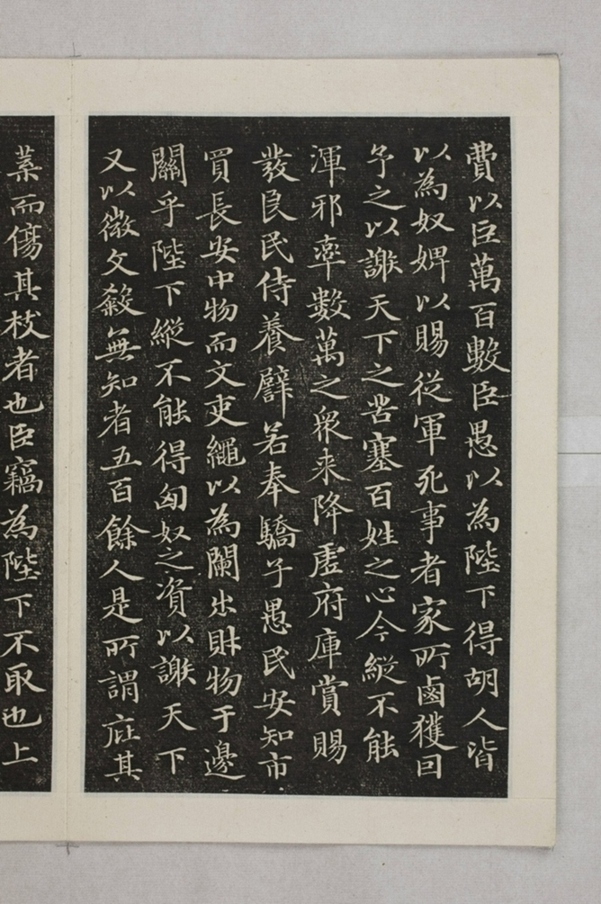 費以巨萬百數臣愚以為陛下得胡人皆
以為奴婢以賜從軍死事者家所鹵獲囙
予之以謝天下之苦塞百姓之心今縱不能
渾邪率數萬之衆来降虗府庫賞賜
發良民侍養譬若奉驕子愚民安知市
買長安中物而文吏繩以為闌出財物于邊
關乎陛下縱不能得匈奴之資以謝天下
又以微文殺無知者五百餘人是所謂庇其
葉而傷其枝者也臣竊為陛下不取也上